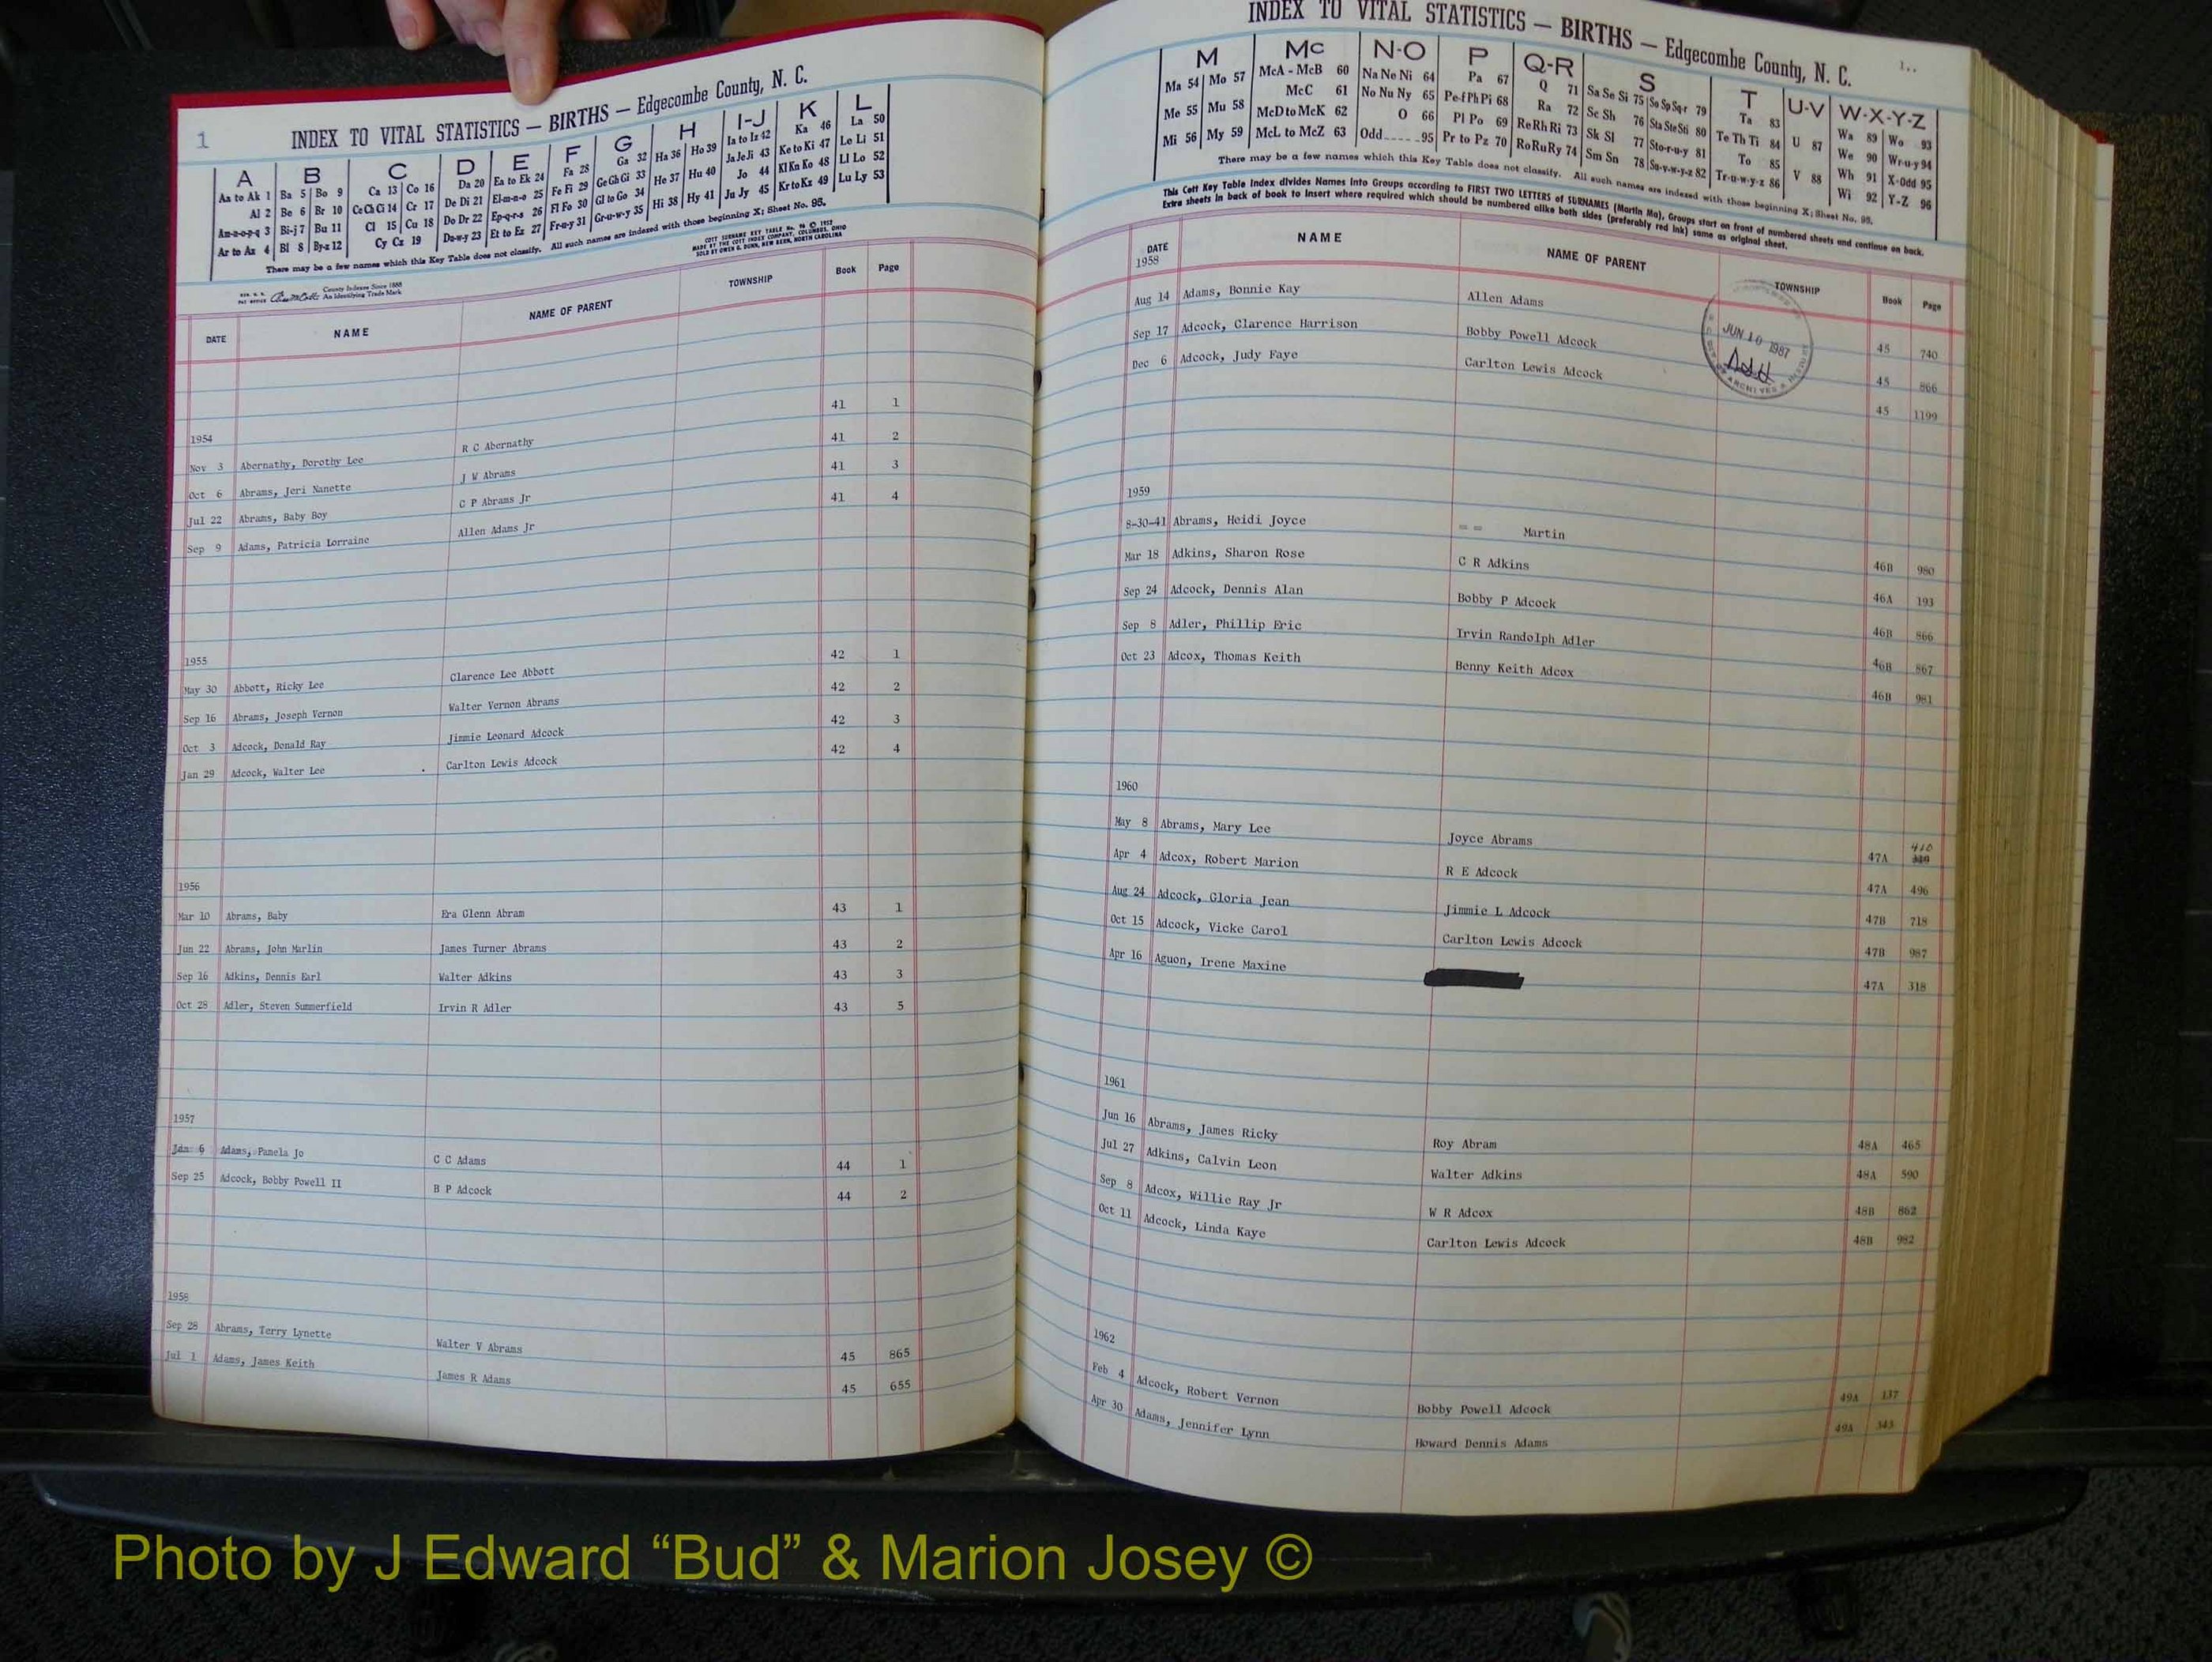 1
INDEX TO VITAL STATISTICS — BIRTHS — Edgecombe County, N. C.
A B C D E F G H I-J K L
Aa to Ak 1 Ba 5 Bo 9 Ca 13 Co 16 Da 20 Ea to Ek 24 Fa 28 Ga 32 Ha 36 Ho 39 Ia to Iz 42 Ka 46 La 50
Al 2 Be 6 Br 10 Ce Ch Ci 14 Cr 17 De Di 21 El-m-n-o 25 Fe Fi 29 Ge Gh Gi 33 He 37 Hu 40 Ja Je Ji 43 Ke to Ki 47 Le Li 51
Am-n-o-p-q 3 Bi-j 7 Bu 11 Cl 15 Cu 18 Do Dr 22 Ep-q-r-s 26 Fl Fo 30 Gl to Go 34 Hi 38 Hy 41 Jo 44 Kl Kn Ko 48 Ll Lo 52
Ar to Az 4 Bl 8 By-z 12 Cy Cz 19 Du-w-y 23 Et to Ez 27 Fr-u-y 31 Gr-u-w-y 35 Ju Jy 45 Kr to Kz 49 Lu Ly 53
There may be a few names which this Key Table does not classify. All such names are indexed with those beginning X; Sheet No. 95.
COTT SURNAME KEY TABLE No. 96 © 1952
MADE BY THE COTT INDEX COMPANY, COLUMBUS, OHIO
SOLD BY OWEN G. DUNN, NEW BERN, NORTH CAROLINA
County Indexes Since 1888
An Identifying Trade Mark
DATE NAME NAME OF PARENT TOWNSHIP Book Page
1954
Nov 3 Abernathy, Dorothy Lee R C Abernathy 41 1
Oct 6 Abrams, Jeri Nanette J W Abrams 41 2
Jul 22 Abrams, Baby Boy C P Abrams Jr 41 3
Sep 9 Adams, Patricia Lorraine Allen Adams Jr 41 4
1955
May 30 Abbott, Ricky Lee Clarence Lee Abbott 42 1
Sep 16 Abrams, Joseph Vernon Walter Vernon Abrams 42 2
Oct 3 Adcock, Donald Ray Jimmie Leonard Adcock 42 3
Jan 29 Adcock, Walter Lee Carlton Lewis Adcock 42 4
1956
Mar 10 Abrams, Baby Era Glenn Abram 43 1
Jun 22 Abrams, John Marlin James Turner Abrams 43 2
Sep 16 Adkins, Dennis Earl Walter Adkins 43 3
Oct 28 Adler, Steven Summerfield Irvin R Adler 43 5
1957
Jan 6 Adams, Pamela Jo C C Adams 44 1
Sep 25 Adcock, Bobby Powell II B P Adcock 44 2
1958
Sep 28 Abrams, Terry Lynette Walter V Abrams 45 865
Jul 1 Adams, James Keith James R Adams 45 655
INDEX TO VITAL STATISTICS — BIRTHS — Edgecombe County, N. C.
1..
M Mc N-O P Q-R S T U-V W-X-Y-Z
Ma 54 Mo 57 McA - McB 60 Na Ne Ni 64 Pa 67 Q 71 Sa Se Si 75 So Sp Sq-r 79 Ta 83 U 87 Wa 89 Wo 93
Me 55 Mu 58 McC 61 No Nu Ny 65 Pe-f Ph Pi 68 Ra 72 Sc Sh 76 Sta Ste Sti 80 Te Th Ti 84 V 88 We 90 Wr-u-y 94
Mi 56 My 59 McD to McK 62 O 66 Pl Po 69 Re Rh Ri 73 Sk Sl 77 Sto-r-u-y 81 To 85 Wh 91 X-Odd 95
McL to McZ 63 Odd 95 Pr to Pz 70 Ro Ru Ry 74 Sm Sn 78 Su-v-w-y-z 82 Tr-u-w-y-z 86 Wi 92 Y-Z 96
There may be a few names which this Key Table does not classify. All such names are indexed with those beginning X; Sheet No. 95.
This Cott Key Table Index divides Names into Groups according to FIRST TWO LETTERS of SURNAMES (Martin Ma), Groups start on front of numbered sheets and continue on back.
Extra sheets in back of book to insert where required which should be numbered alike both sides (preferably red ink) same as original sheet.
DATE NAME NAME OF PARENT TOWNSHIP Book Page
1958
Aug 14 Adams, Bonnie Kay Allen Adams 45 740
Sep 17 Adcock, Clarence Harrison Bobby Powell Adcock 45 866
Dec 6 Adcock, Judy Faye Carlton Lewis Adcock 45 1199
JUN 10 1987
ARCHIVES &
1959
8-30-41 Abrams, Heidi Joyce = = Martin 46B 980
Mar 18 Adkins, Sharon Rose C R Adkins 46A 193
Sep 24 Adcock, Dennis Alan Bobby P Adcock 46B 866
Sep 8 Adler, Phillip Eric Irvin Randolph Adler 46B 867
Oct 23 Adcox, Thomas Keith Benny Keith Adcox 46B 981
1960
May 8 Abrams, Mary Lee Joyce Abrams 47A 410
Apr 4 Adcox, Robert Marion R E Adcock 47A 496
Aug 24 Adcock, Gloria Jean Jimmie L Adcock 47B 718
Oct 15 Adcock, Vicke Carol Carlton Lewis Adcock 47B 987
Apr 16 Aguon, Irene Maxine 47A 318
1961
Jun 16 Abrams, James Ricky Roy Abram 48A 465
Jul 27 Adkins, Calvin Leon Walter Adkins 48A 590
Sep 8 Adcox, Willie Ray Jr W R Adcox 48B 862
Oct 11 Adcock, Linda Kaye Carlton Lewis Adcock 48B 982
1962
Feb 4 Adcock, Robert Vernon Bobby Powell Adcock 49A 137
Apr 30 Adams, Jennifer Lynn Howard Dennis Adams 49A 343
Photo by J Edward “Bud” & Marion Josey ©